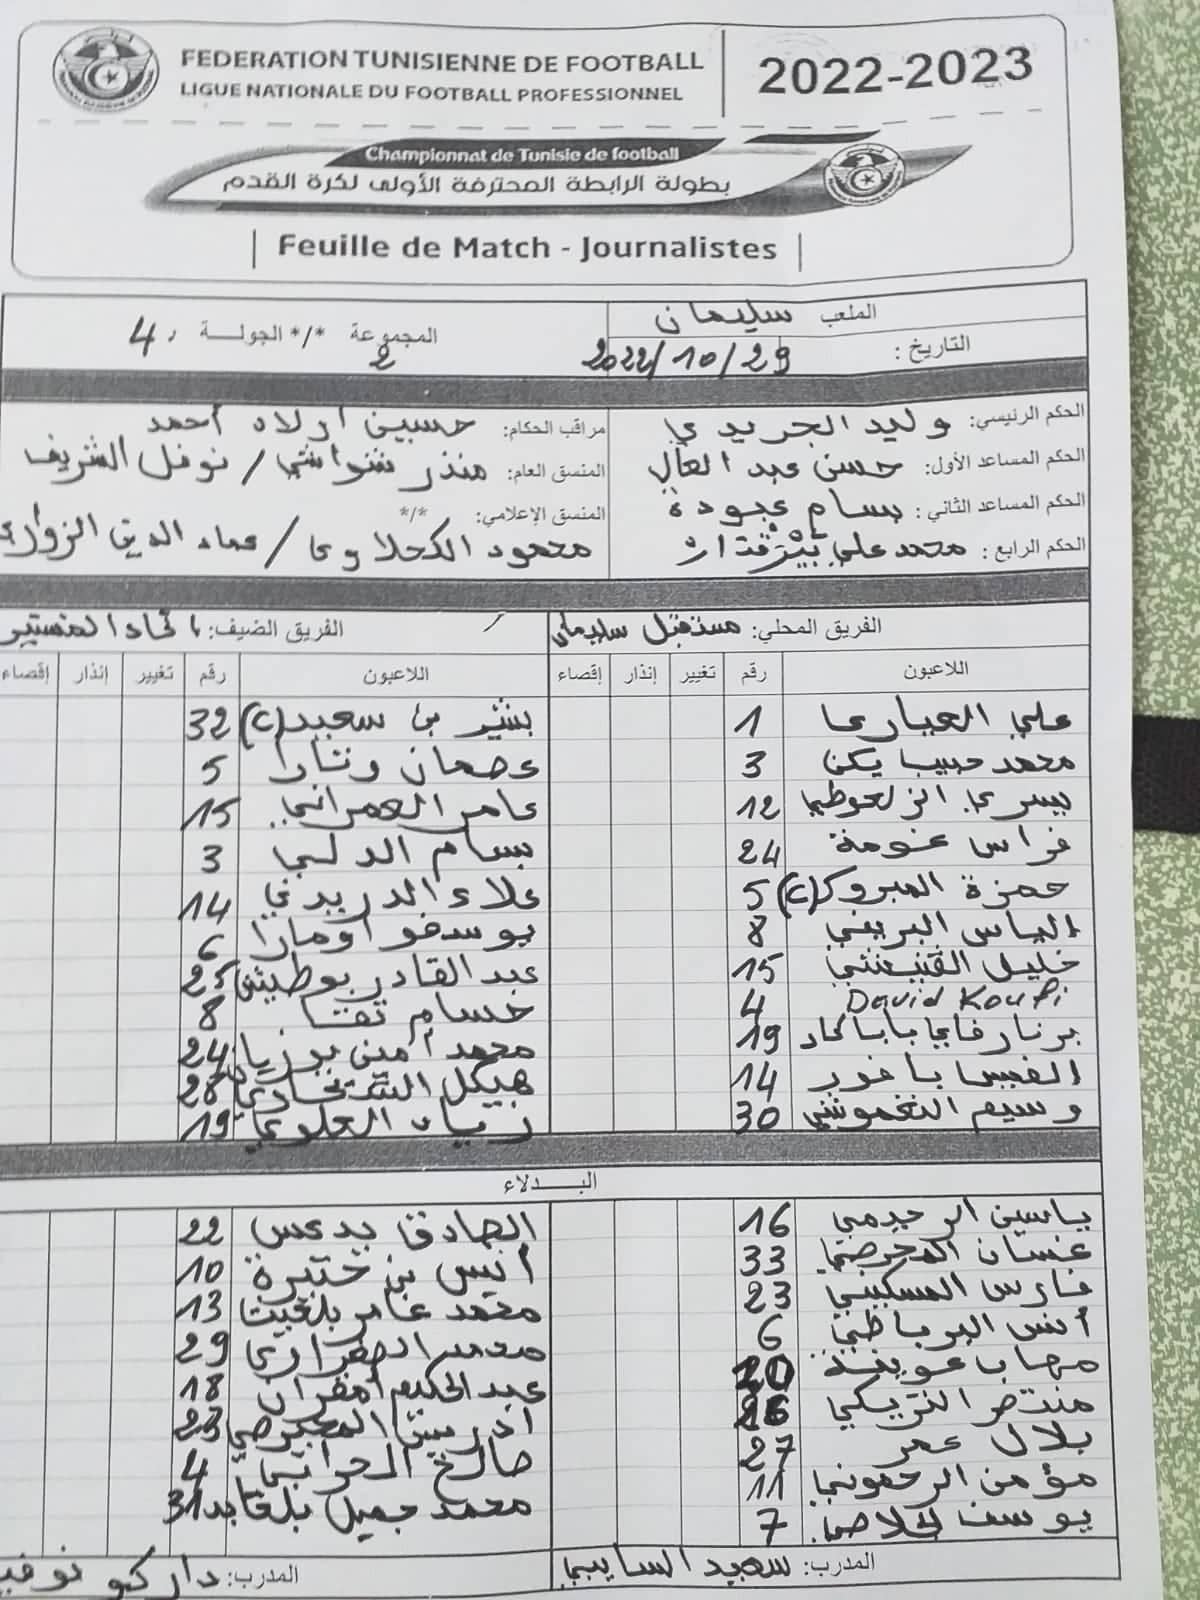 FEDERATION TUNISIENNE DE FOOTBALL
LIGUE NATIONALE DU FOOTBALL PROFESSIONNEL
2022-2023
Championnat de Tunisie de football
بطولة الرابطة المحترفة الأولى لكرة القدم
Feuille de Match - Journalistes
الملعب سليمان
التاريخ : 2022/10/29
المجموعة */* الجولة 4
2
الحكم الرئيسي: وليد الجريدي
مراقب الحكام: حسين أولاد أحمد
الحكم المساعد الأول: حسن عبد العالي
المنسق العام: منذر شواشي / نوفل الشريف
الحكم المساعد الثاني : بسام عبودة
المنسق الإعلامي: */*
محمود الكحلاوي / عماد الدين الزواري
الحكم الرابع : محمد علي بيرقدار
الفريق المحلي: مستقبل سليمان
الفريق الضيف: اتحاد المنستير
اللاعبون رقم تغيير إنذار إقصاء
اللاعبون رقم تغيير إنذار إقصاء
علي العياري 1
بشير بن سعيد (c) 32
محمد حبيب يكن 3
عصمان وتارا 5
يسري الزعوطي 12
عامر العمراني 15
فراس 24
بسام الدلي 3
حمزة المبروك (c) 5
علاء الدريدي 14
الياس البريني 8
يوسفو اومارا 6
خليل 15
عبد القادر بوطيش 25
David Koufi 4
حسام تقا 8
برنار فاي بابا 19
محمد أمين بوزيان 24
باغور 14
هيكل الشيخاوي 28
وسيم النغموشي 30
زياد العلوي 19
البدلاء
ياسين الرجيمي 16
الصادق يدعس 22
غسان المحرصي 33
أنيس بن حتيرة 10
فارس المسكيني 23
محمد عامر بلغيث 13
أنس البرباطي 6
29
مهاب عوينة 20
عبد الحكيم أمقران 18
منتصر التريكي
ادريس المحيرصي 23
بلال عمر 27
صالح الحراني 4
مؤمن الرحموني 11
محمد جميل بلعابد 31
يوسف 7
المدرب: سعيد السايبي
المدرب: داركو نوفي